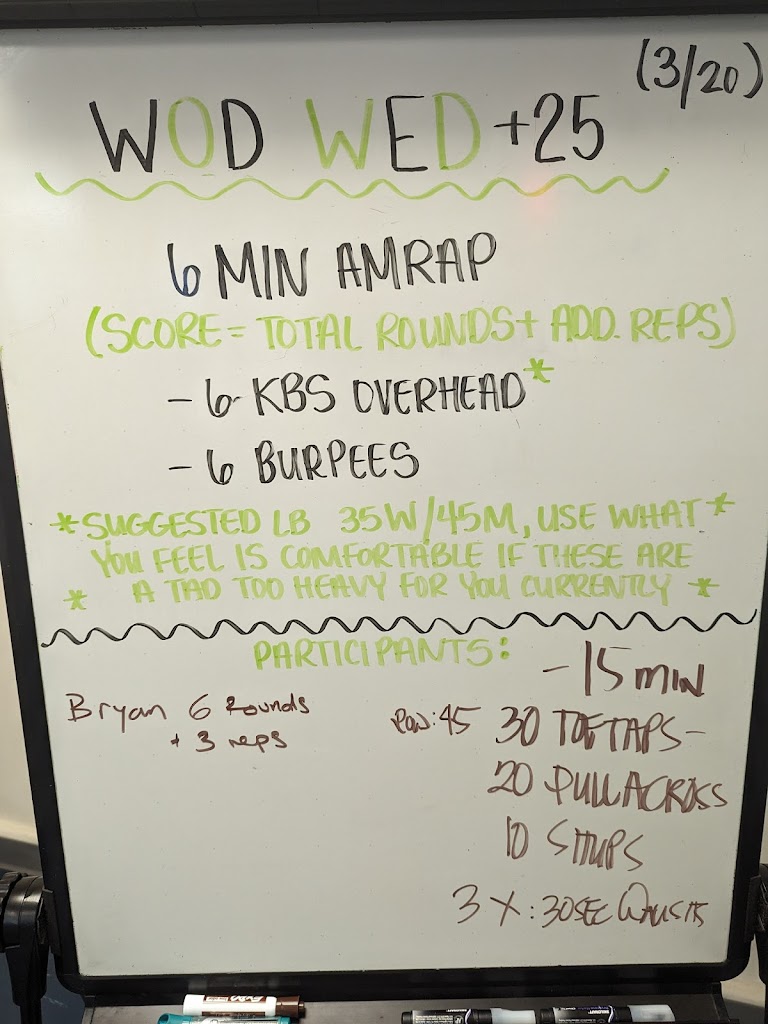 (3/20)
WOD WED +25
6 MIN AMRAP
(SCORE = TOTAL ROUNDS + ADD. REPS)
- 6 KBS OVERHEAD*
- 6 BURPEES
*SUGGESTED LB 35W/45M, USE WHAT*
YOU FEEL IS COMFORTABLE IF THESE ARE
* A TAD TOO HEAVY FOR YOU CURRENTLY *
PARTICIPANTS:
- 15 MIN
Bryan 6 Rounds
+ 3 reps
:45 30 TOE TAPS -
20 PULL ACROSS
10 SITUPS
3 X :30 SEC WALL SITS
EXPO